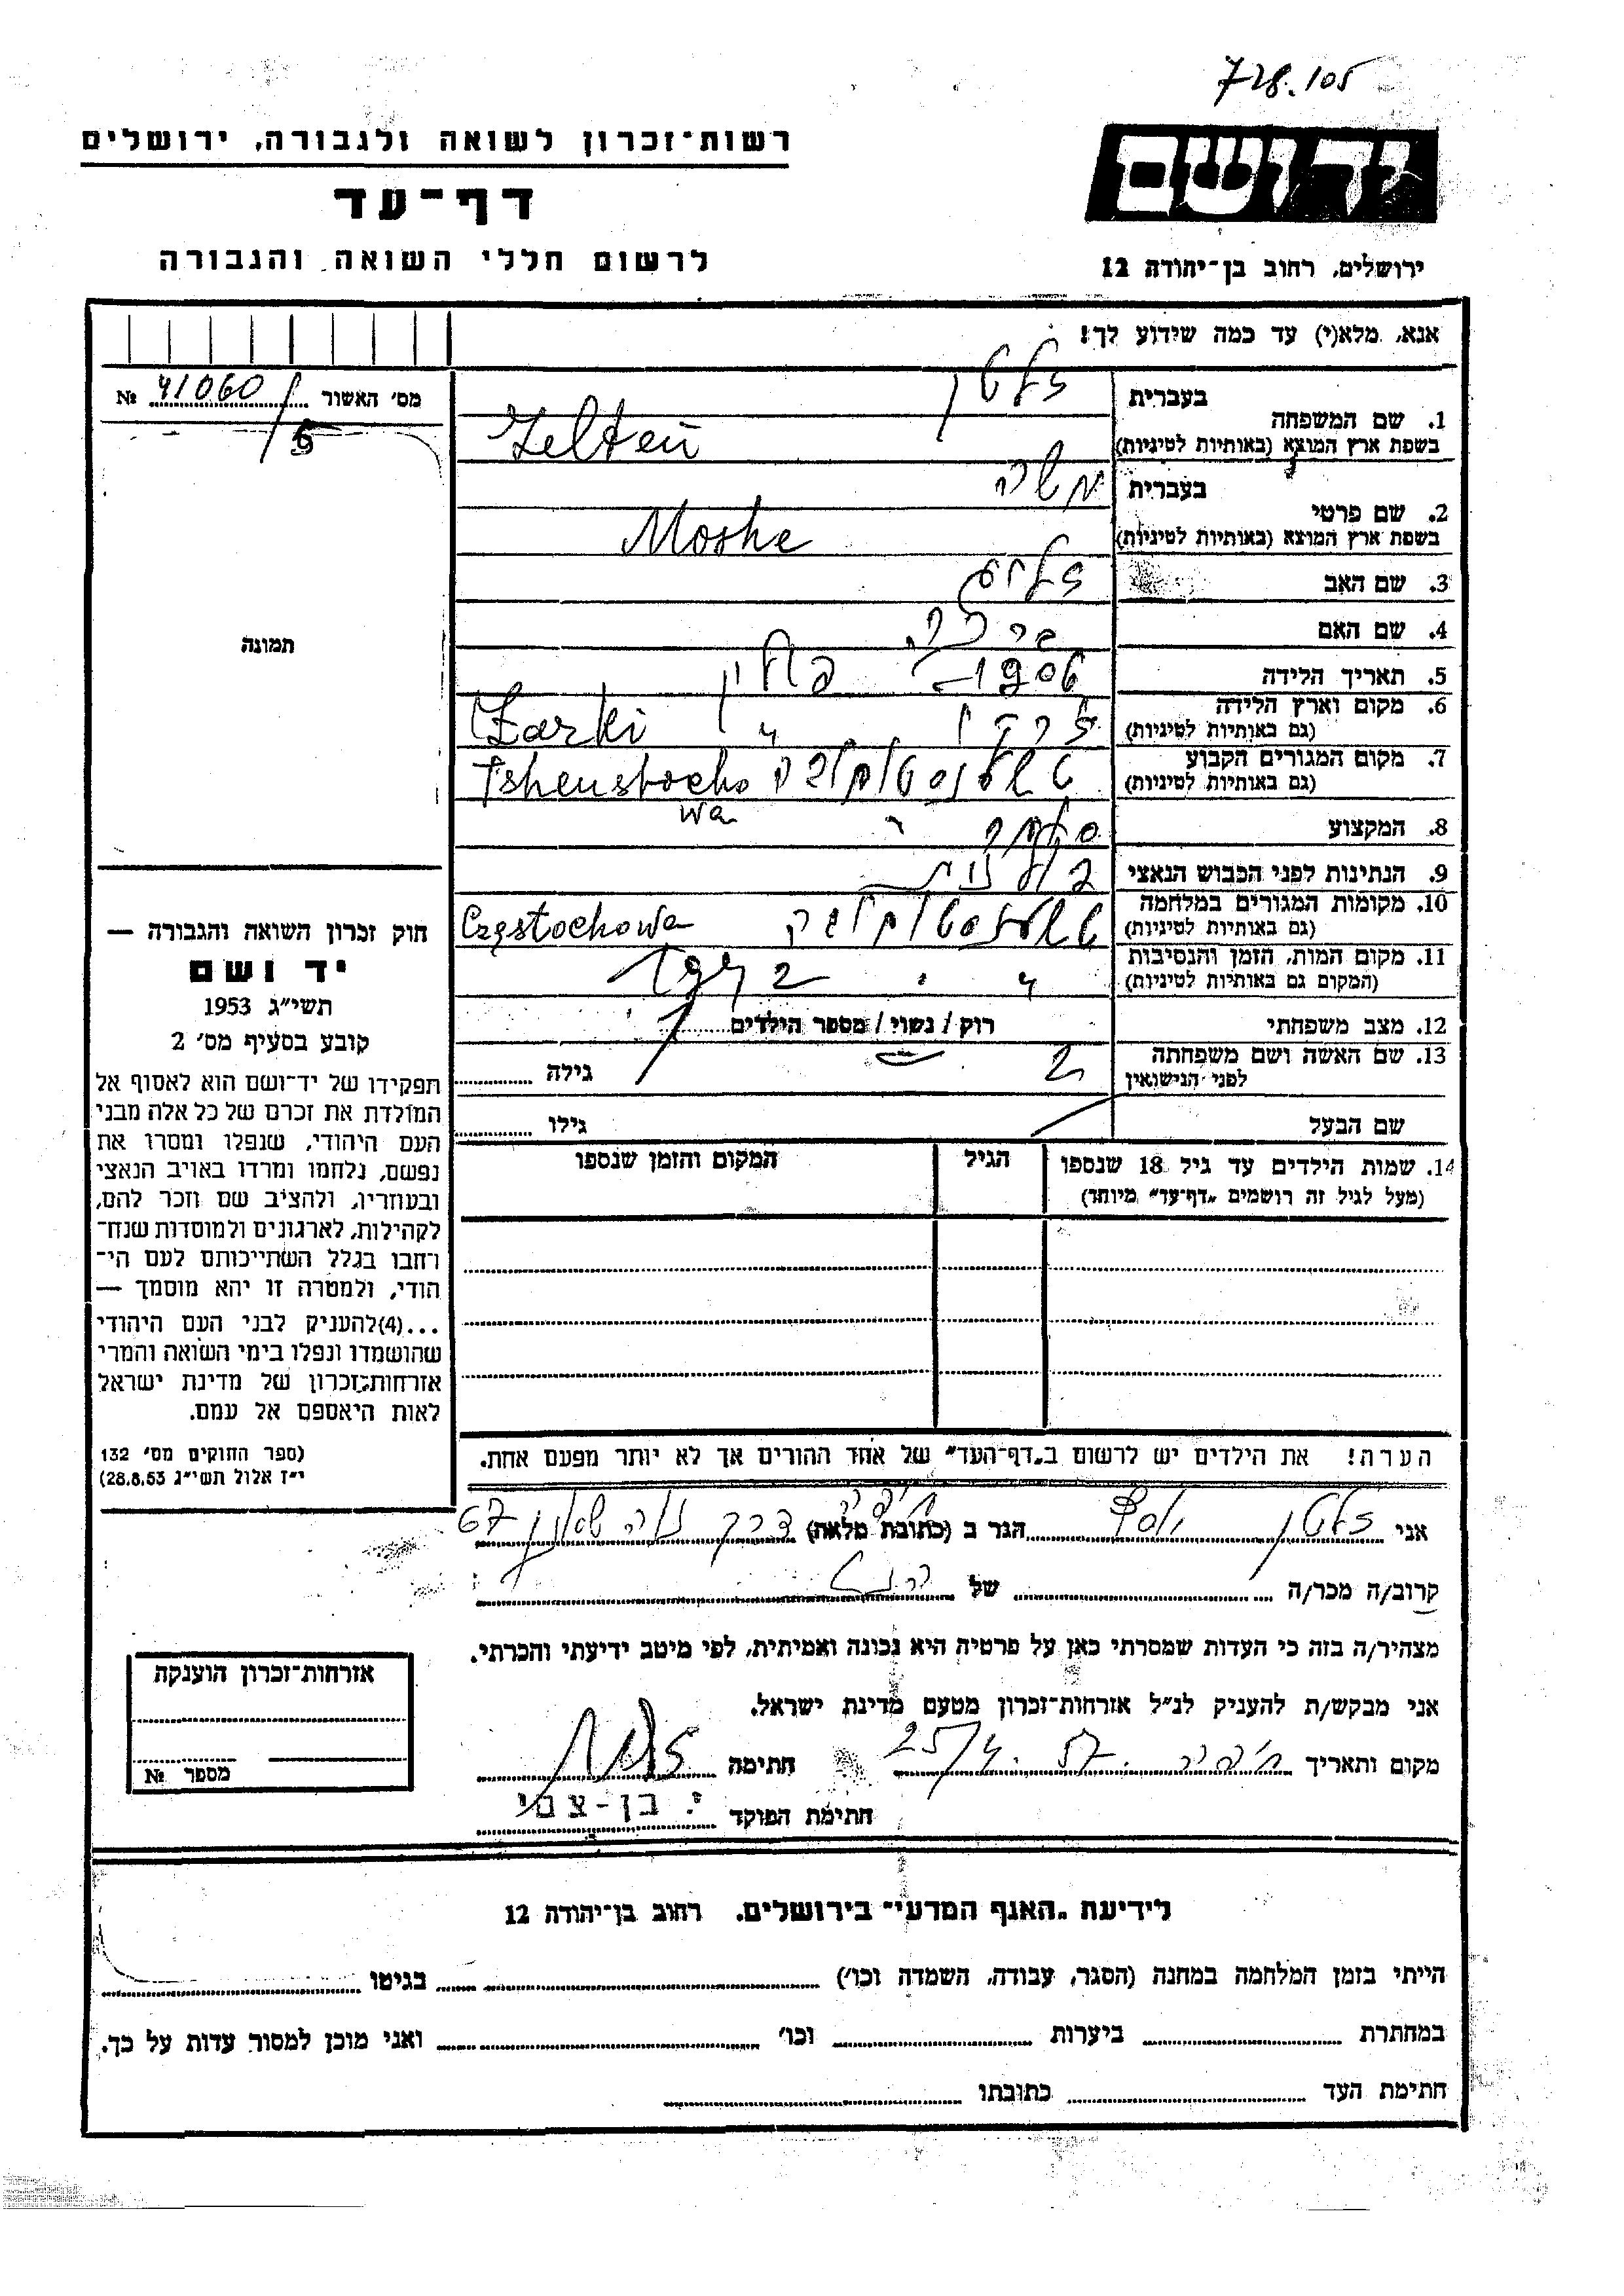 728.105
רשות־זכרון לשואה ולגבורה, ירושלים
דף־עד
לרשום חללי השואה והגבורה
יד ושם
ירושלים, רחוב בן־יהודה 12
אנא, מלא(י) עד כמה שידוע לך!
מס' האשור № 41060
5
תמונה
1. שם המשפחה
בעברית זלטן
בשפת ארץ המוצא (באותיות לטיניות) Zelten
2. שם פרטי
בעברית משה
בשפת ארץ המוצא (באותיות לטיניות) Moshe
3. שם האב
4. שם האם
5. תאריך הלידה 1906
6. מקום וארץ הלידה פולין
(גם באותיות לטיניות) Zarki
7. מקום המגורים הקבוע
(גם באותיות לטיניות) Tshenstocho
wa
8. המקצוע
9. הנתינות לפני הכבוש הנאצי
10. מקומות המגורים במלחמה
(גם באותיות לטיניות) Częstochowa
11. מקום המות, הזמן והנסיבות
(המקום גם באותיות לטיניות) 1942
12. מצב משפחתי רוק / נשוי / מספר הילדים
13. שם האשה ושם משפחתה
לפני הנישואין גילה
שם הבעל גילו
14. שמות הילדים עד גיל 18 שנספו הגיל המקום והזמן שנספו
(מעל לגיל זה רושמים "דף־עד" מיוחד)
הערה! את הילדים יש לרשום ב"דף־העד" של אחד ההורים אך לא יותר מפעם אחת.
חוק זכרון השואה והגבורה —
יד ושם
תשי"ג 1953
קובע בסעיף מס' 2
תפקידו של יד־ושם הוא לאסוף אל
המולדת את זכרם של כל אלה מבני
העם היהודי, שנפלו ומסרו את
נפשם, נלחמו ומרדו באויב הנאצי
ובעוזריו, ולהציב שם וזכר להם,
לקהילות, לארגונים ולמוסדות שנח־
רחבו בגלל השתייכותם לעם הי־
הודי, ולמטרה זו יהא מוסמך —
...(4)להעניק לבני העם היהודי
שהושמדו ונפלו בימי השואה והמרי
אזרחות־זכרון של מדינת ישראל
לאות היאספם אל עמם.
(ספר החוקים מס' 132
י"ז אלול תשי"ג 28.8.53)
אני זלטן יוסף הגר ב (כתובת מלאה) חיפה דרך נוה שאנן 67
קרוב/ה מכר/ה של
מצהיר/ה בזה כי העדות שמסרתי כאן על פרטיה היא נכונה ואמיתית, לפי מיטב ידיעתי והכרתי.
אני מבקש/ת להעניק לנ"ל אזרחות־זכרון מטעם מדינת ישראל.
מקום ותאריך חיפה 25/4.57 חתימה
חתימת הפוקד י. בן-צבי
אזרחות־זכרון הוענקה
מספר №
לידיעת "האגף המדעי" בירושלים. רחוב בן־יהודה 12
הייתי בזמן המלחמה במחנה (הסגר, עבודה, השמדה וכו') בגיטו
במחתרת ביערות וכו' ואני מוכן למסור עדות על כך.
חתימת העד כתובתו